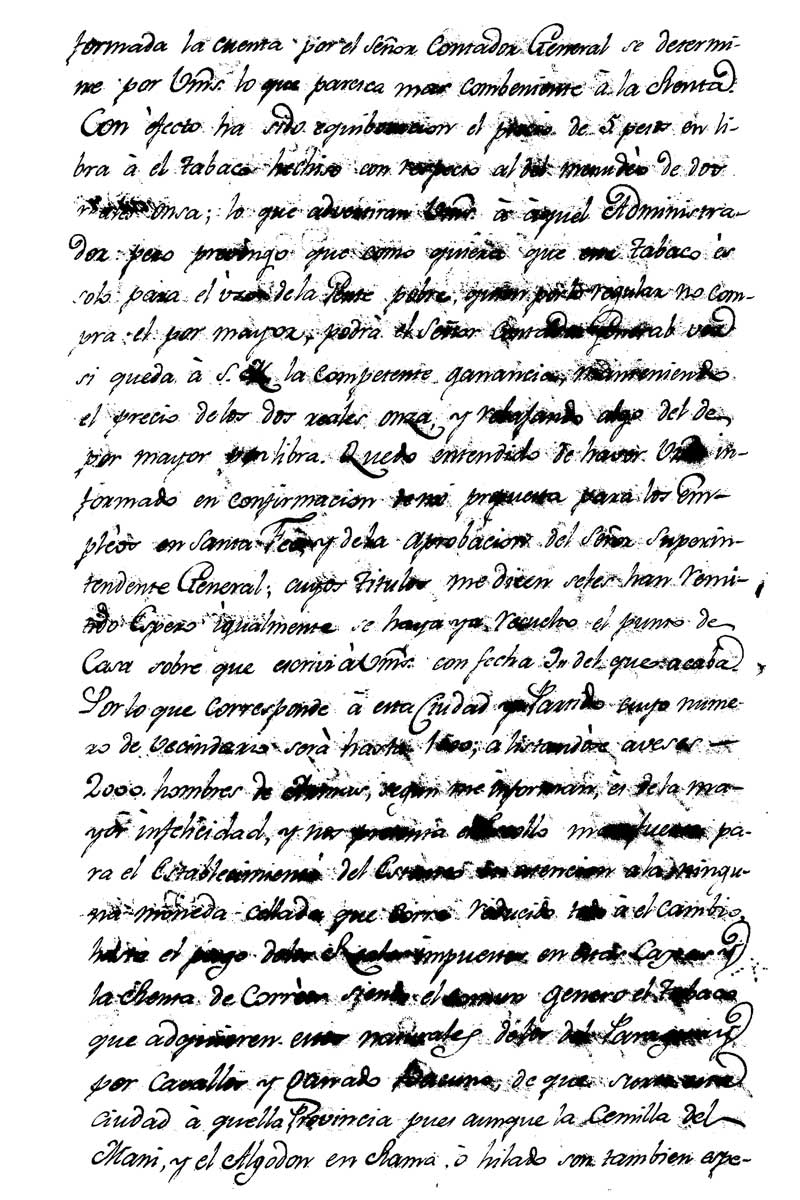 formada la cuenta por el Señor Contador General se determi-
ne por Vms. lo que paresca mas combeniente à la Renta.
Con efecto ha sido equibocacion el precio de 5 pesos en li-
bra à el tabaco hechiso con respecto al del menudeo de dos
onsa; lo que advertiran Vms. à àquel Administra-
dor. pero prevengo que como quiera que este tabaco és
solo para el úzo de la Gente pobre, quien por lo regular no com-
pra el por mayor, podrà el Señor Contador General ver
si queda à S. M. la competente ganancia, manteniendo
el precio de los dos reales onza, y rebajando algo del de
por mayor por libra. Quedo entendido de haver Vms. in-
formado en confirmacion de mi propuesta para los Em-
pléos en Santa Feé, y de la aprobacion del Señor Superin-
tendente General, cuyos titulos me dicen seles han remi-
tido Espero igualmente se haya ya resuelto el punto de
Casa sobre que escriví à Vms. con fecha 9,, del que acaba.
Por lo que corresponde à esta Ciudad y Partido cuyo nume-
ro de vecindario serà hasta alistandóse aveses
2000. hombres de Armas, segun me informan, és de la ma-
yor infelicidad, y nos presenta escollo mas fuerte pa-
ra el Establecimiento del Estanco en atencion ala ningu-
na moneda cellada que corre reducido todo à el cambio,
hasta el pago delos Reales impuestos en estas Caxas y
la Renta de Corréos siendo el comun genero el tabaco
que adquieren estos naturales délos del Paraguay
por Cavallos y Ganado Bacuno, de que surte esta
Ciudad à quella Provincia pues aunque la Cemilla del
Mani, y el Algodon en Rama ò hilado son tambien espe-